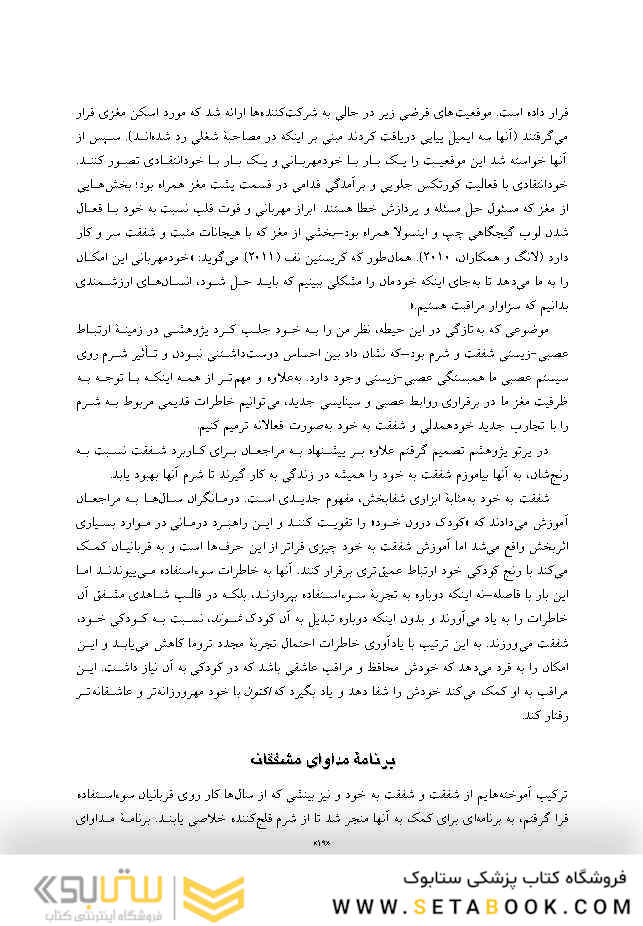 قرار داده است. موقعیت‌های فرضی زیر در حالی به شرکت‌کننده‌ها ارائه شد که مورد اسکن مغزی قرار
می‌گرفتند (آنها سه ایمیل پیاپی دریافت کردند مبنی بر اینکه در مصاحبهٔ شغلی رد شده‌اند). سپس از
آنها خواسته شد این موقعیت را یک بار با خودمهربانی و یک بار با خودانتقادی تصور کنند.
خودانتقادی با فعالیت کورتکس جلویی و برآمدگی قدامی در قسمت پشت مغز همراه بود؛ بخش‌هایی
از مغز که مسئول حل مسئله و پردازش خطا هستند. ابراز مهربانی و قوت قلب نسبت به خود با فعال
شدن لوب گیجگاهی چپ و اینسولا همراه بود–بخشی از مغز که با هیجانات مثبت و شفقت سر و کار
دارد (لانگ و همکاران، ۲۰۱۰). همان‌طور که کریستین نف (۲۰۱۱) می‌گوید: «خودمهربانی این امکان
را به ما می‌دهد تا به‌جای اینکه خودمان را مشکلی ببینیم که باید حل شود، انسان‌های ارزشمندی
بدانیم که سزاوار مراقبت هستیم.»
موضوعی که به‌تازگی در این حیطه، نظر من را به خود جلب کرد پژوهشی در زمینهٔ ارتباط
عصبی-زیستی شفقت و شرم بود–که نشان داد بین احساس دوست‌داشتنی نبودن و تأثیر شرم روی
سیستم عصبی ما همبستگی عصبی-زیستی وجود دارد. به‌علاوه و مهم‌تر از همه اینکه با توجه به
ظرفیت مغز ما در برقراری روابط عصبی و سیناپسی جدید، می‌توانیم خاطرات قدیمی مربوط به شرم
را با تجارب جدید خودهمدلی و شفقت به خود به‌صورت فعالانه ترمیم کنیم.
در پرتو پژوهشم تصمیم گرفتم علاوه بر پیشنهاد به مراجعان برای کاربرد شفقت نسبت به
رنج‌شان، به آنها بیاموزم شفقت به خود را همیشه در زندگی به کار گیرند تا شرم آنها بهبود یابد.
شفقت به خود به‌مثابهٔ ابزاری شفابخش، مفهوم جدیدی است. درمانگران سال‌ها به مراجعان
آموزش می‌دادند که «کودک درون خود» را تقویت کنند و این راهبرد درمانی در موارد بسیاری
اثربخش واقع می‌شد اما آموزش شفقت به خود چیزی فراتر از این حرف‌ها است و به قربانیان کمک
می‌کند با رنج کودکی خود ارتباط عمیق‌تری برقرار کنند. آنها به خاطرات سوءاستفاده می‌پیوندند اما
این بار با فاصله–نه اینکه دوباره به تجربهٔ سوءاستفاده بپردازند، بلکه در قالب شاهدی مشفق آن
خاطرات را به یاد می‌آورند و بدون اینکه دوباره تبدیل به آن کودک شوند، نسبت به کودکی خود،
شفقت می‌ورزند. به این ترتیب با یادآوری خاطرات احتمال تجربهٔ مجدد تروما کاهش می‌یابد و این
امکان را به فرد می‌دهد که خودش محافظ و مراقب عاشقی باشد که در کودکی به آن نیاز داشت. این
مراقب به او کمک می‌کند خودش را شفا دهد و یاد بگیرد که اکنون با خود مهرورزانه‌تر و عاشقانه‌تر
رفتار کند.
برنامهٔ مداوای مشفقانه
ترکیب آموخته‌هایم از شفقت و شفقت به خود و نیز بینشی که از سال‌ها کار روی قربانیان سوءاستفاده
فرا گرفتم، به برنامه‌ای برای کمک به آنها منجر شد تا از شرم فلج‌کننده خلاصی یابند. برنامهٔ مداوای
«۱۹»
فروشگاه کتاب پزشکی ستابوک
WWW.SETABOOK.COM
ستابوک
فروشگاه اینترنتی کتاب